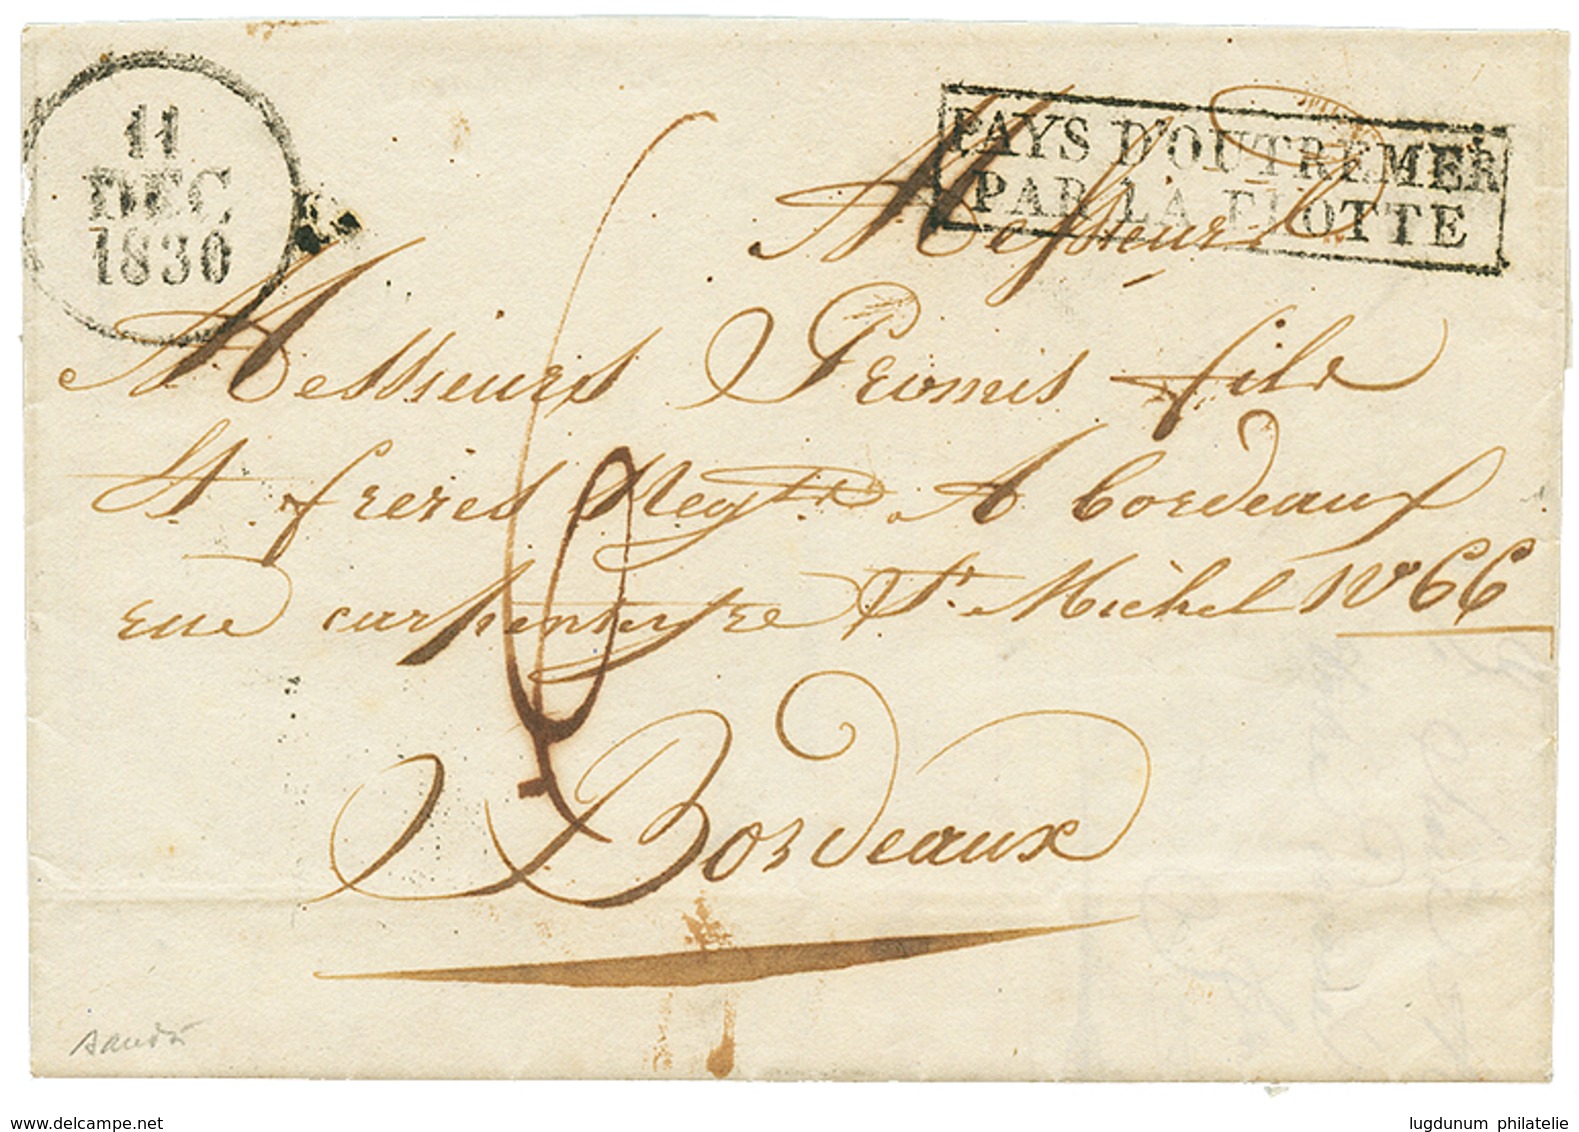 11
DEC
1830
PAYS D'OUTREMER
PAR LA FLOTTE
Messieurs
Messieurs Promis fils
St. freres Negts A bordeaux
rue carpenteyre St. Michel No 66
6
Bordeaux
www.delcampe.net
lugdunum philatelie